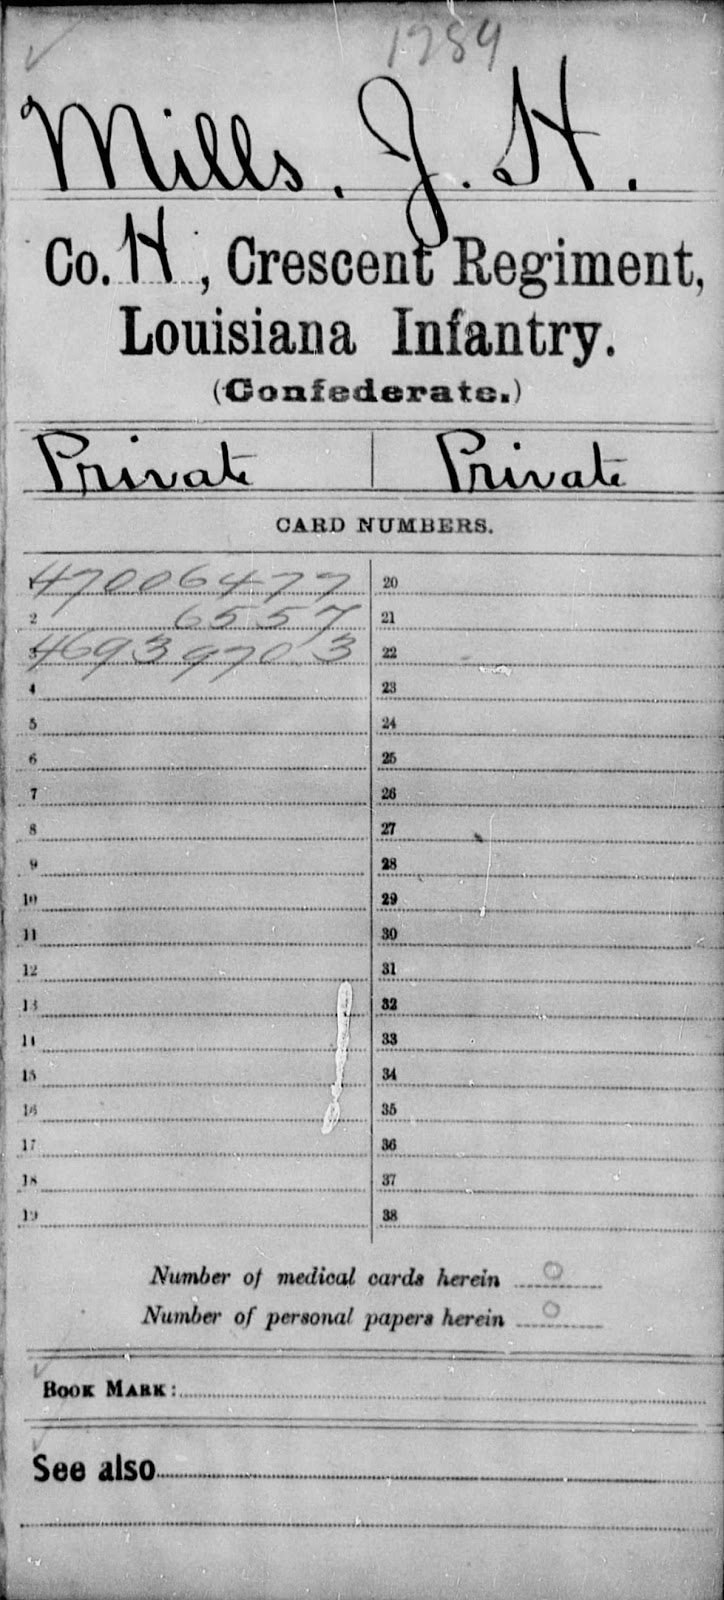 1289
Mills, J. H.
Co. H, Crescent Regiment,
Louisiana Infantry.
(Confederate.)
Private | Private
CARD NUMBERS.
1 47006477 20
2 6557 21
3 46939703 22
4 23
5 24
6 25
7 26
8 27
9 28
10 29
11 30
12 31
13 32
14 33
15 34
16 35
17 36
18 37
19 38
Number of medical cards herein 0
Number of personal papers herein 0
BOOK MARK:
See also